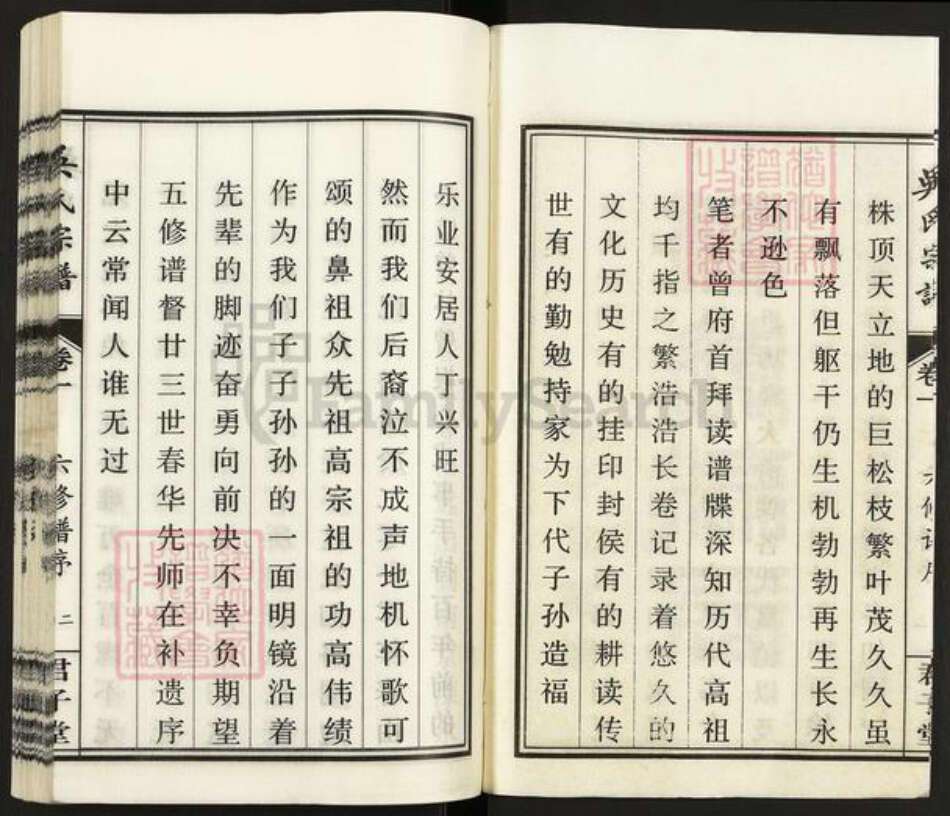 吴氏宗谱
卷一
六修谱序
株顶天立地的巨松枝繁叶茂久久虽
有飘落但躯干仍生机勃勃再生长永
不逊色
笔者曾府首拜读谱牒深知历代高祖
均千指之繁浩浩长卷记录着悠久的
文化历史有的挂印封侯有的耕读传
世有的勤勉持家为下代子孙造福
乐业安居人丁兴旺
然而我们后裔泣不成声地机怀歌可
颂的鼻祖众先祖高宗祖的功高伟绩
作为我们子子孙孙的一面明镜沿着
先辈的脚迹奋勇向前决不幸负期望
五修谱督廿三世春华先师在补遗序
中云常闻人谁无过
吴氏宗谱
卷一
六修谱序
二
君子堂
FamilySearch